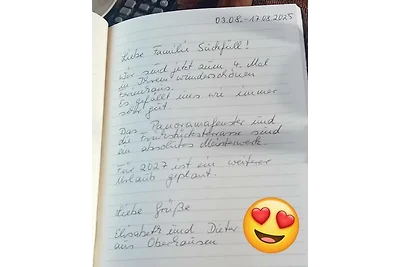 03.08.-17.08.2025
Liebe Familie Süßfüll!
Wir sind jetzt zum 4. Mal
in Ihrem wunderschönen
Ferienhaus.
Es gefällt uns wie immer
sehr gut.
Das Panoramafenster und
die Frühstücksterrasse sind
ein absolutes Meisterwerk.
Für 2027 ist ein weiterer
Urlaub geplant.
Liebe Grüße
Elisabeth und Dieter
aus Oberhausen